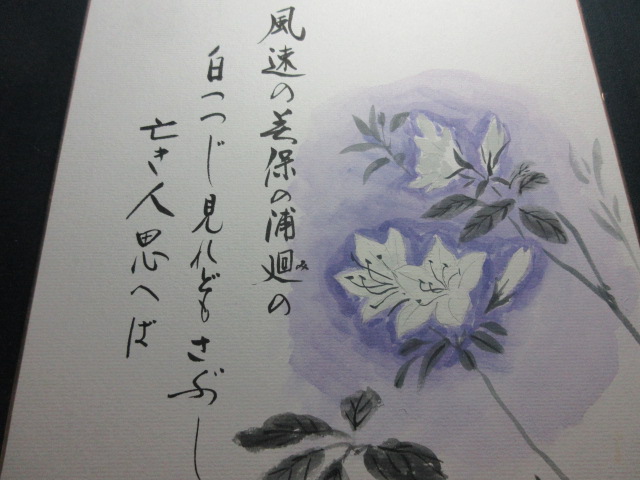 風速の美保の浦廻の
白つつじ見れどもさぶし
亡き人思へば